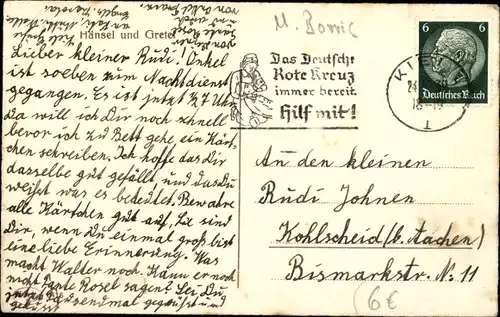 Hänsel und Gretel
Lieber kleiner Rudi! Onkel
ist soeben zum Nachtdienst
gegangen. Es ist jetzt ½ 7 Uhr.
Da will ich Dir noch schnell
bevor ich zu Bett gehe ein Kärt-
chen schreiben. Ich hoffe das Dir
dasselbe gut gefällt und das Du
weißt was es bedeutet. Bewahre
alle Kärtchen gut auf, sie sind
Dir, wenn Du einmal groß bist
eine liebe Erinnerung. Was
macht Walter noch. Kann er noch
nicht Tante Rosel sagen? Sei Du
jetzt tausendmal gegrüßt und
geküsst
M. Borris
Das Deutsche
Rote Kreuz
immer bereit
Hilf mit!
6 6
Deutsches Reich
KIEL
24
18-19
1
An den kleinen
Rudi Johnen
Kohlscheid (b. Aachen)
Bismarkstr. N. 11
6€